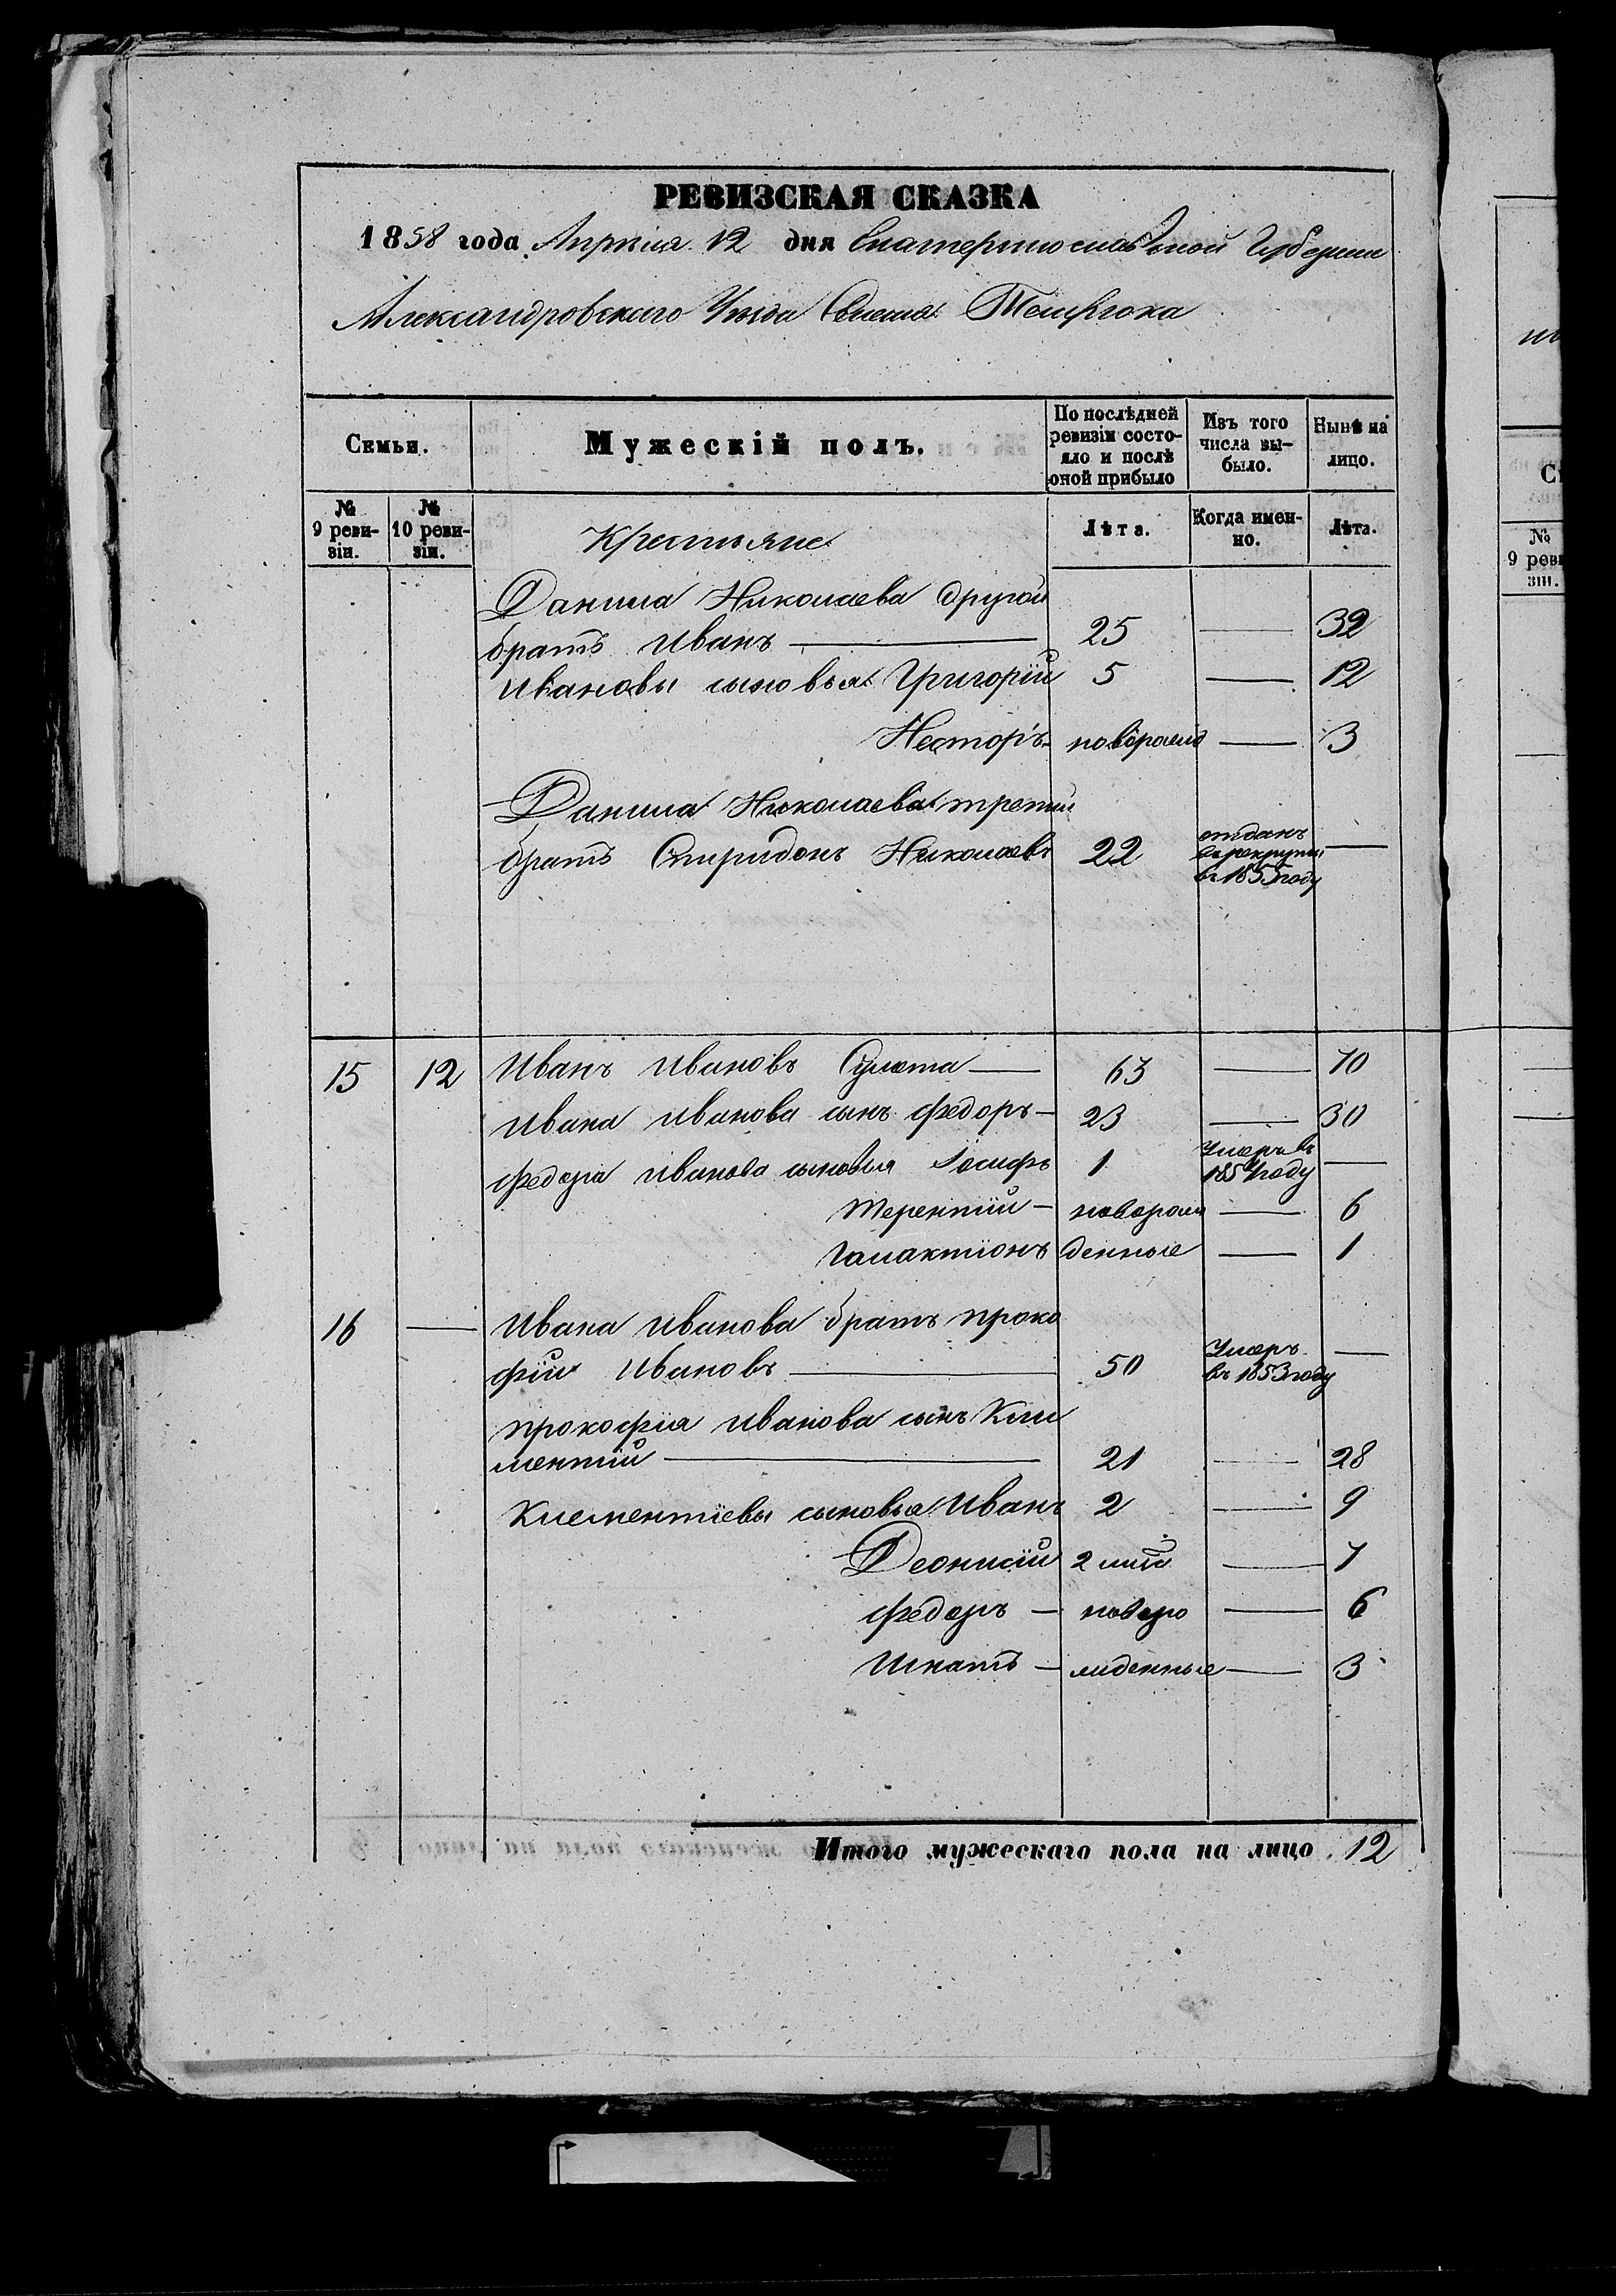 РЕВИЗСКАЯ СКАЗКА
1858 года Апрѣля 12 дня Екатеринославской Губерніи
Александровскаго Уѣзда Селенія
Семьи.
Мужескій полъ.
По послѣдней ревизіи состояло и послѣ оной прибыло
Изъ того числа выбыло.
Нынѣ на лицо.
№ 9 ревизіи.
№ 10 ревизіи.
Крестьяне
Лѣта.
Когда именно.
Лѣта.
Данила Николаева другой
братъ Иванъ — 25 — 32
Ивановы сыновья Григорій 5 — 12
Несторъ - новорожд — 3
Данила Николаева третій
братъ Спиридонъ Николаевъ 22 отданъ в рекруты въ 1855 году —
15 12 Иванъ Ивановъ Сулета — 63 — 70
Ивана Иванова сынъ Федоръ — 23 — 30
Федора Иванова сыновья Іосифъ 1 Умеръ въ 1854 году —
Терентій — новорож — 6
Галактіонъ денные — 1
16 — Ивана Иванова братъ проко
фій Ивановъ — 50 Умеръ въ 1853 году —
Прокофія Иванова сынъ Кли
ментій — 21 — 28
Клементіевы сыновья Иванъ 2 — 9
Деонисій — 7
Федоръ — новоро — 6
Игнатъ — жденные — 3
Итого мужескаго пола на лицо . 12
№
9 реви
зіи.